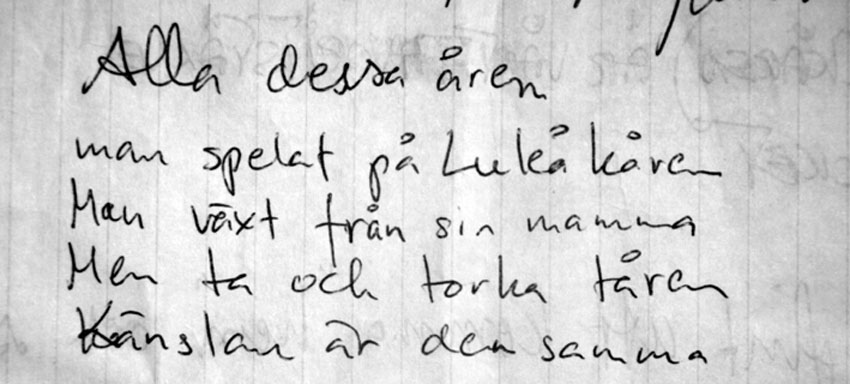 Alla dessa åren
man spelat på Luleå kåren
Man växt från sin mamma
Men ta och torka tåren
Känslan är den samma